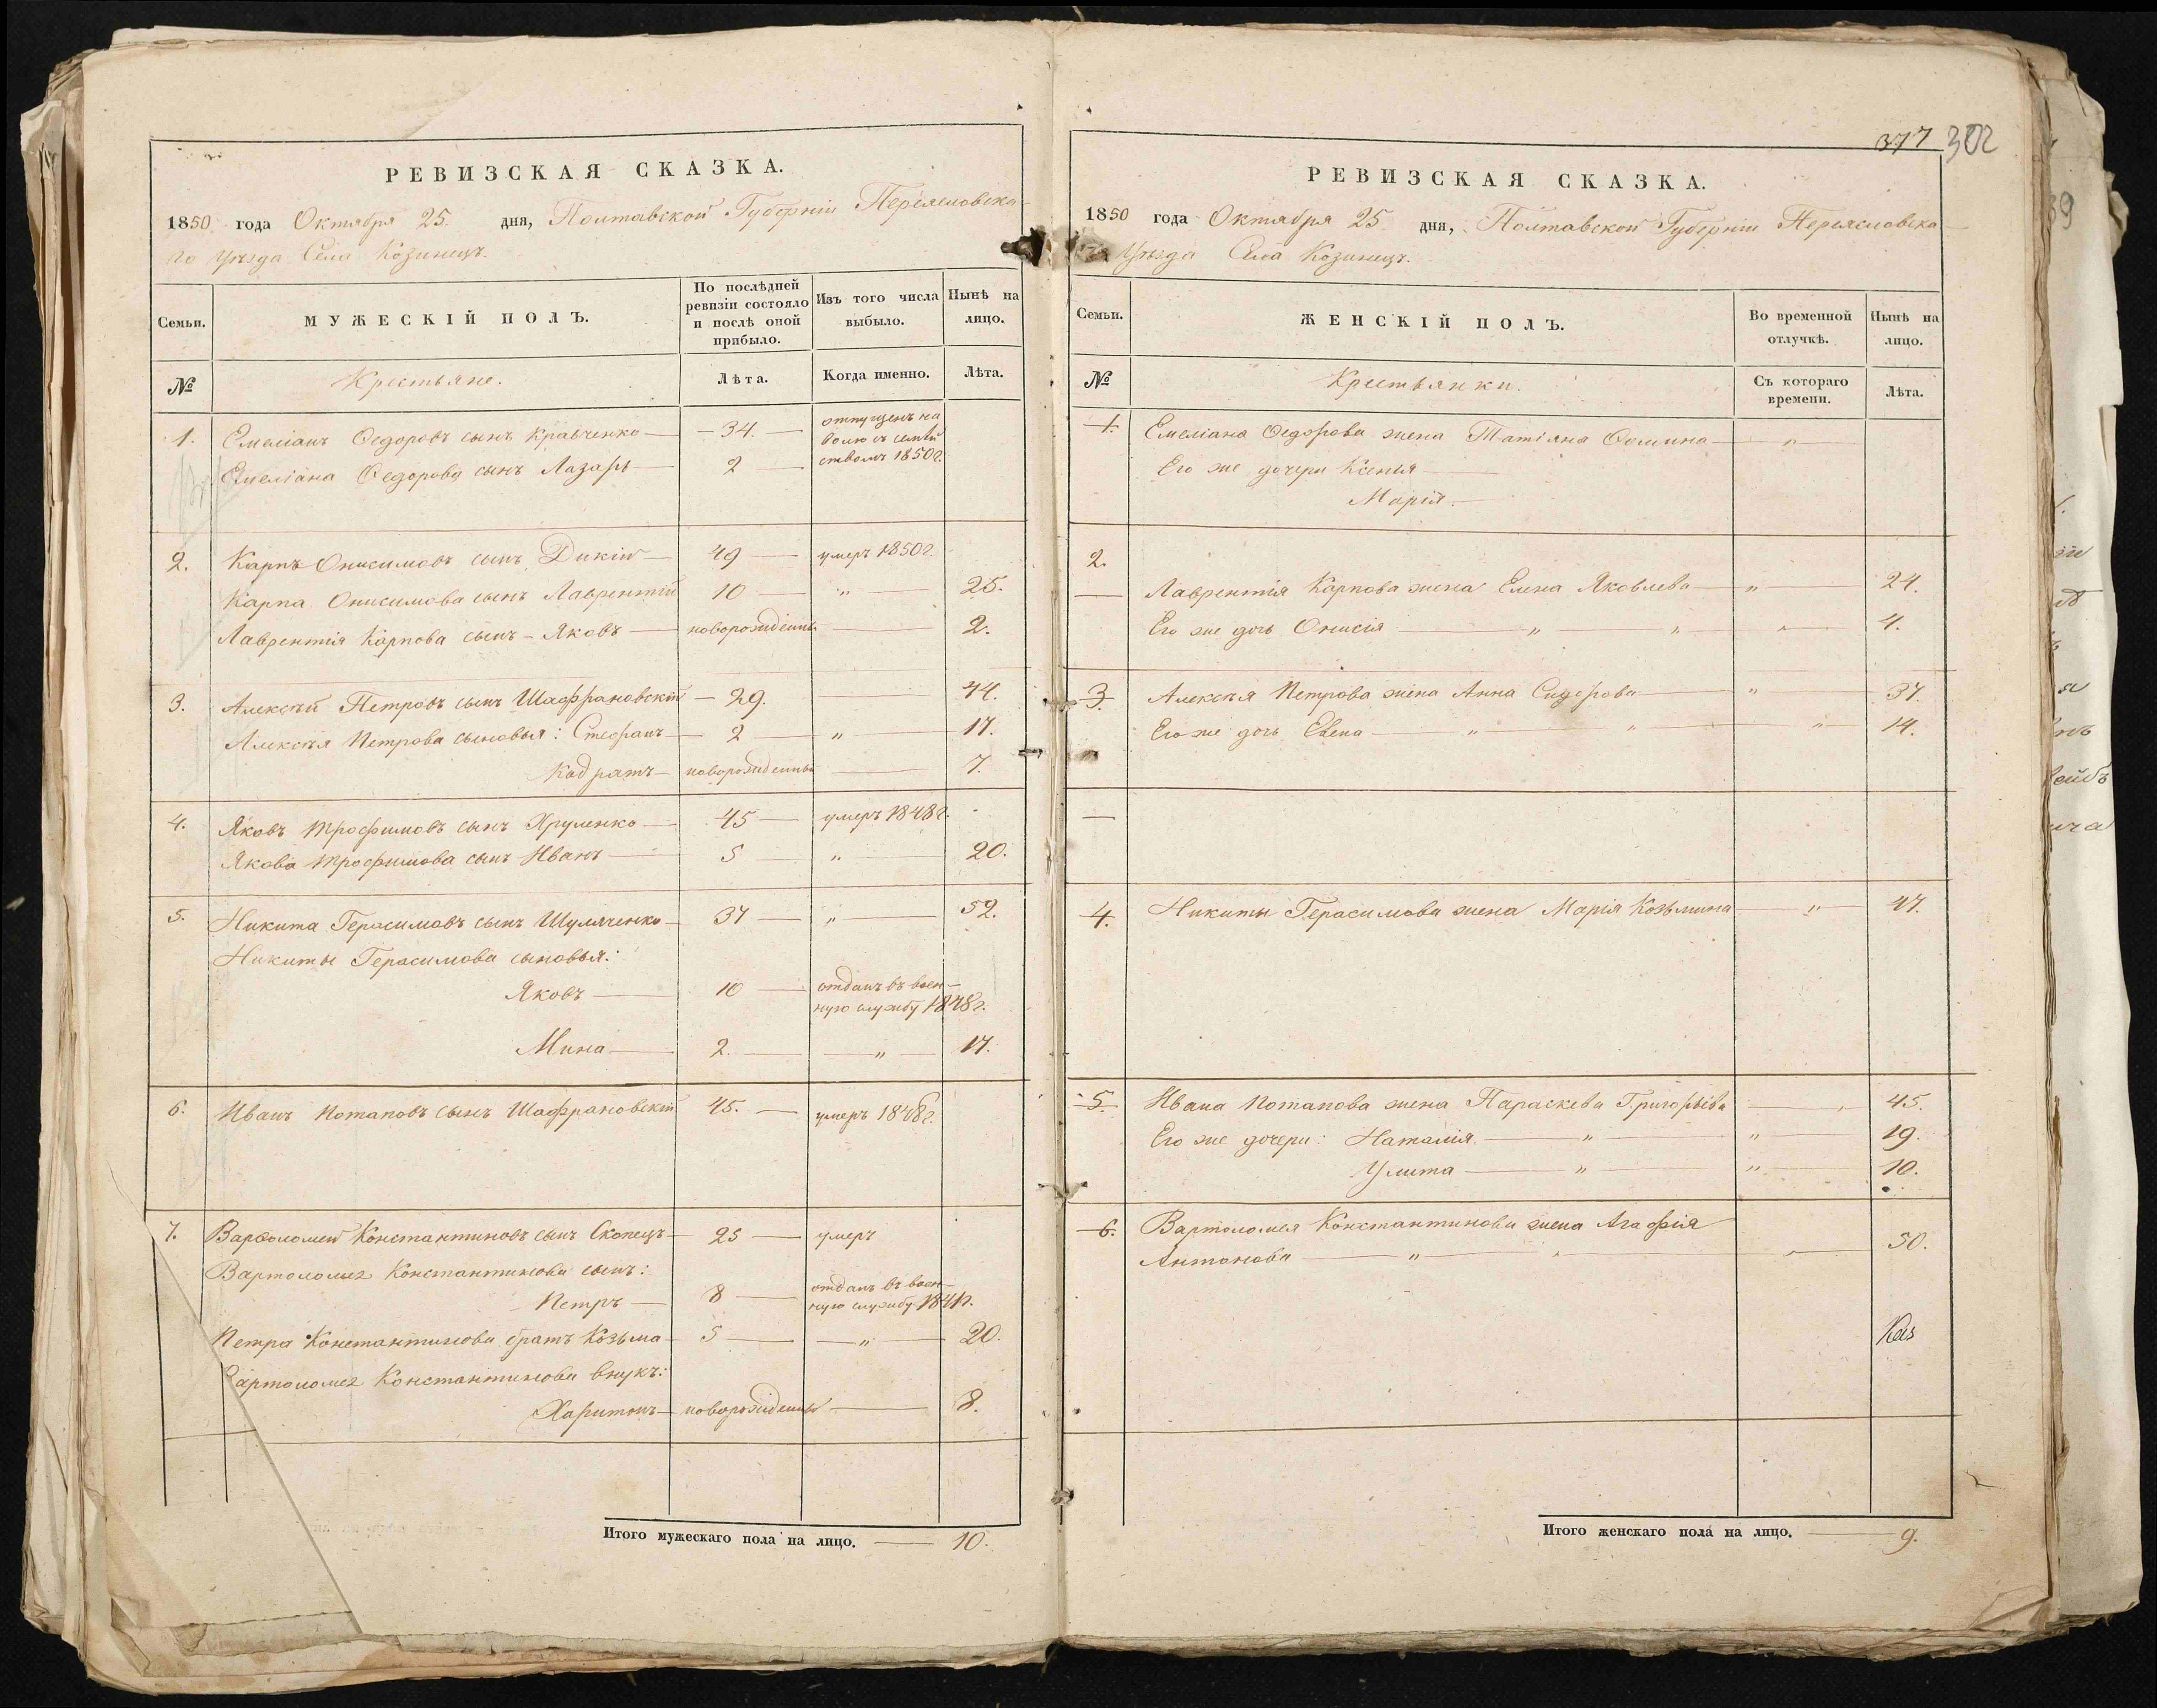 РЕВИЗСКАЯ СКАЗКА.
1850 года Октября 25 дня, Полтавской Губерніи Переясловска-
го Уѣзда Села Козинецъ.
Семьи.
МУЖЕСКІЙ ПОЛЪ.
По послѣдней
ревизіи состояло
и послѣ оной
прибыло.
Изъ того числа
выбыло.
Нынѣ на
лицо.
№
Крестьяне.
Лѣта.
Когда именно.
Лѣта.
1. Емеліанъ Ѳедоровъ сынъ Кравченко — 34. — отпущенъ на
волю съ семей
ствомъ 1850г.
Емеліана Ѳедорова сынъ Лазарь — 2 —
2. Карпъ Онисимовъ сынъ Дикій — 49 — умеръ 1850г.
Карпа Онисимова сынъ Лаврентій 10 — " — 25.
Лаврентія Карпова сынъ - Яковъ — новорожденный — 2.
3. Алексѣй Петровъ сынъ Шаффрановскій — 29. — 44.
Алексѣя Петрова сыновья: Стефанъ — 2 — " — 17.
Кодратъ — новорожденный — 7.
4. Яковъ Трофимовъ сынъ Хруленко — 45 — умеръ 1848г.
Якова Трофимова сынъ Иванъ — 5 " 20.
5. Никита Герасимовъ сынъ Шуляченко — 37 — " — 52.
Никиты Герасимова сыновья:
Яковъ — 10 — отданъ въ воен-
ную службу 1848г.
Мина — 2. — " — 17.
6. Иванъ Потаповъ сынъ Шафрановскій 45. — умеръ 1848г.
7. Варѳоломей Константиновъ сынъ Скопецъ — 25 — умеръ
Вартоломея Константинова сынъ:
Петръ — 8 — отданъ въ воен-
ную службу
Петра Константинова братъ Козьма — 5 — " — 20.
Вартоломея Константинова внукъ:
Харитонъ — новорожденный — 8.
Итого мужескаго пола на лицо. — 10.
377 302
РЕВИЗСКАЯ СКАЗКА.
1850 года Октября 25 дня, Полтавской Губерніи Переясловска-
го Уѣзда Села Козинецъ.
Семьи.
ЖЕНСКІЙ ПОЛЪ.
Во временной
отлучкѣ.
Нынѣ на
лицо.
№
Крестьянки.
Съ котораго
времени.
Лѣта.
1. Емеліана Ѳедорова жена Татіяна Ѳомина — " —
Его же дочери Ксенья —
Марія —
2.
— Лаврентія Карпова жена Елена Яковлева — " — 24.
Его же дочь Онисія — " — " — " — 4.
3. Алексѣя Петрова жена Анна Сидорова — " — 37.
Его же дочь Евгена — " — " — " — 14.
—
4. Никиты Герасимова жена Марія Козьмина — " — 47.
5. Ивана Потапова жена Параскева Григорьева — " 45.
Его же дочери: Наталія. — " — " — 19.
Улита — " — " — 10.
6. Вартоломея Константинова жена Агафія
Антонова — " — " — " — 50.
Итого женскаго пола на лицо. — 9.